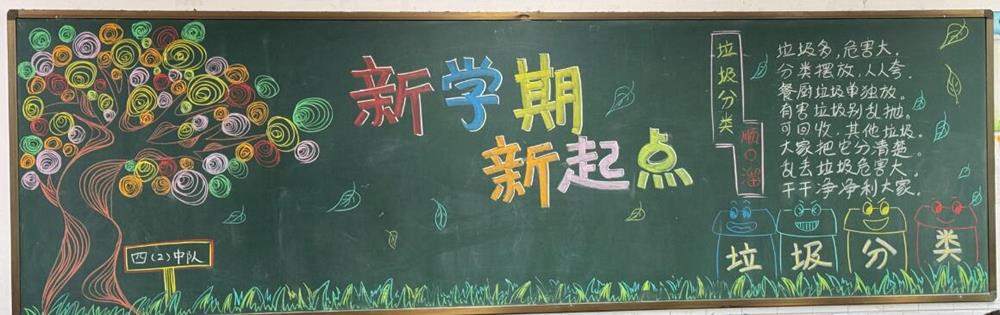 新学期
新起点
四(2)中队
垃圾分类
顺口溜
垃圾多,危害大。
分类摆放,人人夸。
餐厨垃圾单独放。
有害垃圾别乱抛。
可回收,其他垃圾。
大家把它分清楚。
乱丢垃圾危害大。
干干净净利大家。
垃圾分类